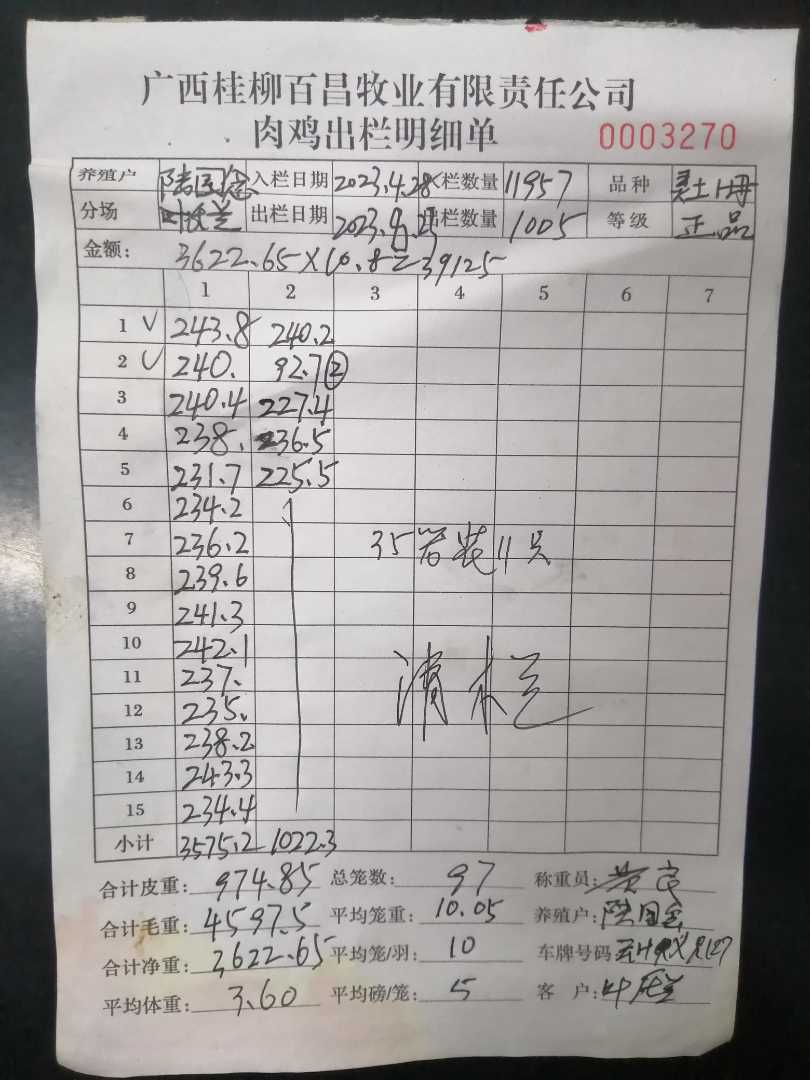 广西桂柳百昌牧业有限责任公司
肉鸡出栏明细单 0003270
养殖户 陆国 入栏日期 2023.4.28 入栏数量 11957 品种 土
分场 叶 兰 出栏日期 2023.9. 出栏数量 1005 等级 正品
金额: 3622.65×10.8=39125
1 2 3 4 5 6 7
1 √ 243.8 240.2
2 √ 240. 92.7 ②
3 240.4 227.4
4 238. 236.5
5 231.7 225.5
6 234.2
7 236.2 35 装11只
8 239.6
9 241.3
10 242.1
11 237. 清栏
12 235.
13 238.2
14 243.3
15 234.4
小计 3575.2 1022.3
合计皮重: 974.85 总笼数: 97 称重员: 黄良
合计毛重: 4597.5 平均笼重: 10.05 养殖户: 陆国
合计净重: 3622.65 平均笼/羽: 10 车牌号码
平均体重: 3.60 平均磅/笼: 5 客户: 叶 兰